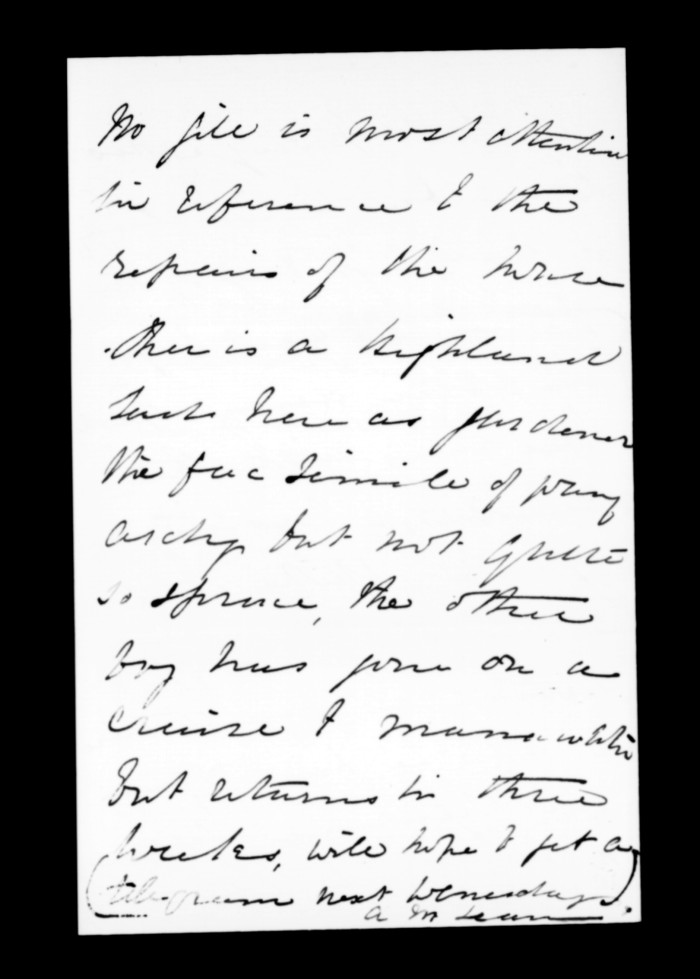 Mr Gill is most attentive
in reference to the
repairs of the house
there is a highland
lad here as gardener
the fac simile of young
archy but not quite
so spruce, the other
boy has gone on a
cruise to Manawatu
but returns in three
weeks, will hope to get a
(telegram next Wenesday)
A McLean